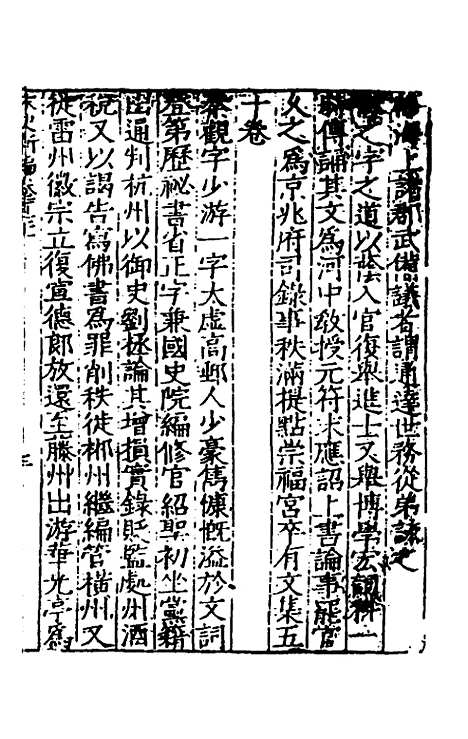 上諸郡武備議者謂通達世務從弟詠之
之字之道以蔭入官復舉進士又舉博學宏詞科一
傳誦其文為河中教授元符末應詔上書論事罷官
久之為京兆府司錄事秩滿提點崇福宮卒有文集五
十卷
秦觀字少游一字太虛高郵人少豪雋慷慨溢於文詞
登第歷祕書省正字兼國史院編修官紹聖初坐黨籍
出通判杭州以御史劉拯論其增損實錄貶監處州酒
稅又以謁告寫佛書為罪削秩徙郴州繼編管橫州又
徙雷州徽宗立復宣德郎放還至藤州出游華光亭為